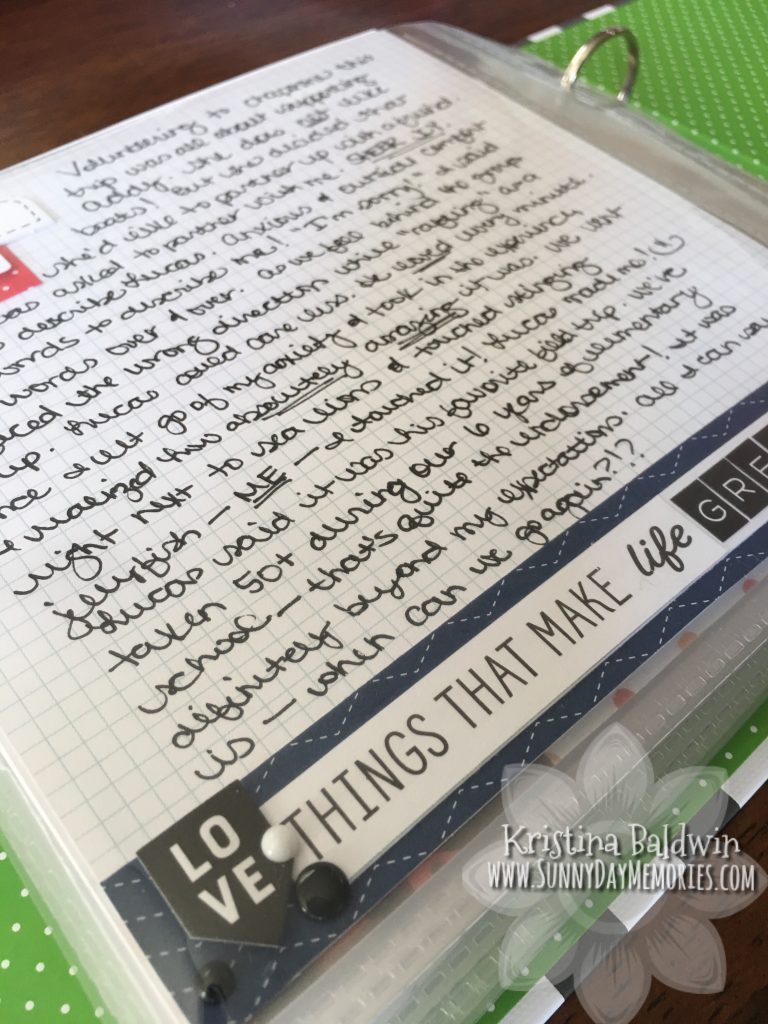 Volunteering to chaperone this
trip was all about supporting
Addy. She does not like
boats! But she decided that
she'd like to partner up with a friend.
asked to partner with me.
describe Lucas. Anxious &
words to describe me! "I'm sorry" I said
words over & over. As we fell behind the group
the wrong direction while and
up. Lucas could care less. He loved every minute.
I let go of my anxiety & took in the experience
I realized how absolutely amazing it was. We went
right next to sea lions & touched stinging
jellyfish – ME – I touched it! Lucas made me!
Lucas said it was his favorite field trip. We've
taken 50+ during our 6 years of elementary
school – that's quite the endorsement! It was
definitely beyond my expectations. All I can say
is – when can we go again?!?
THINGS THAT MAKE life GRE
LO
VE
Kristina Baldwin
www.SunnyDayMemories.com